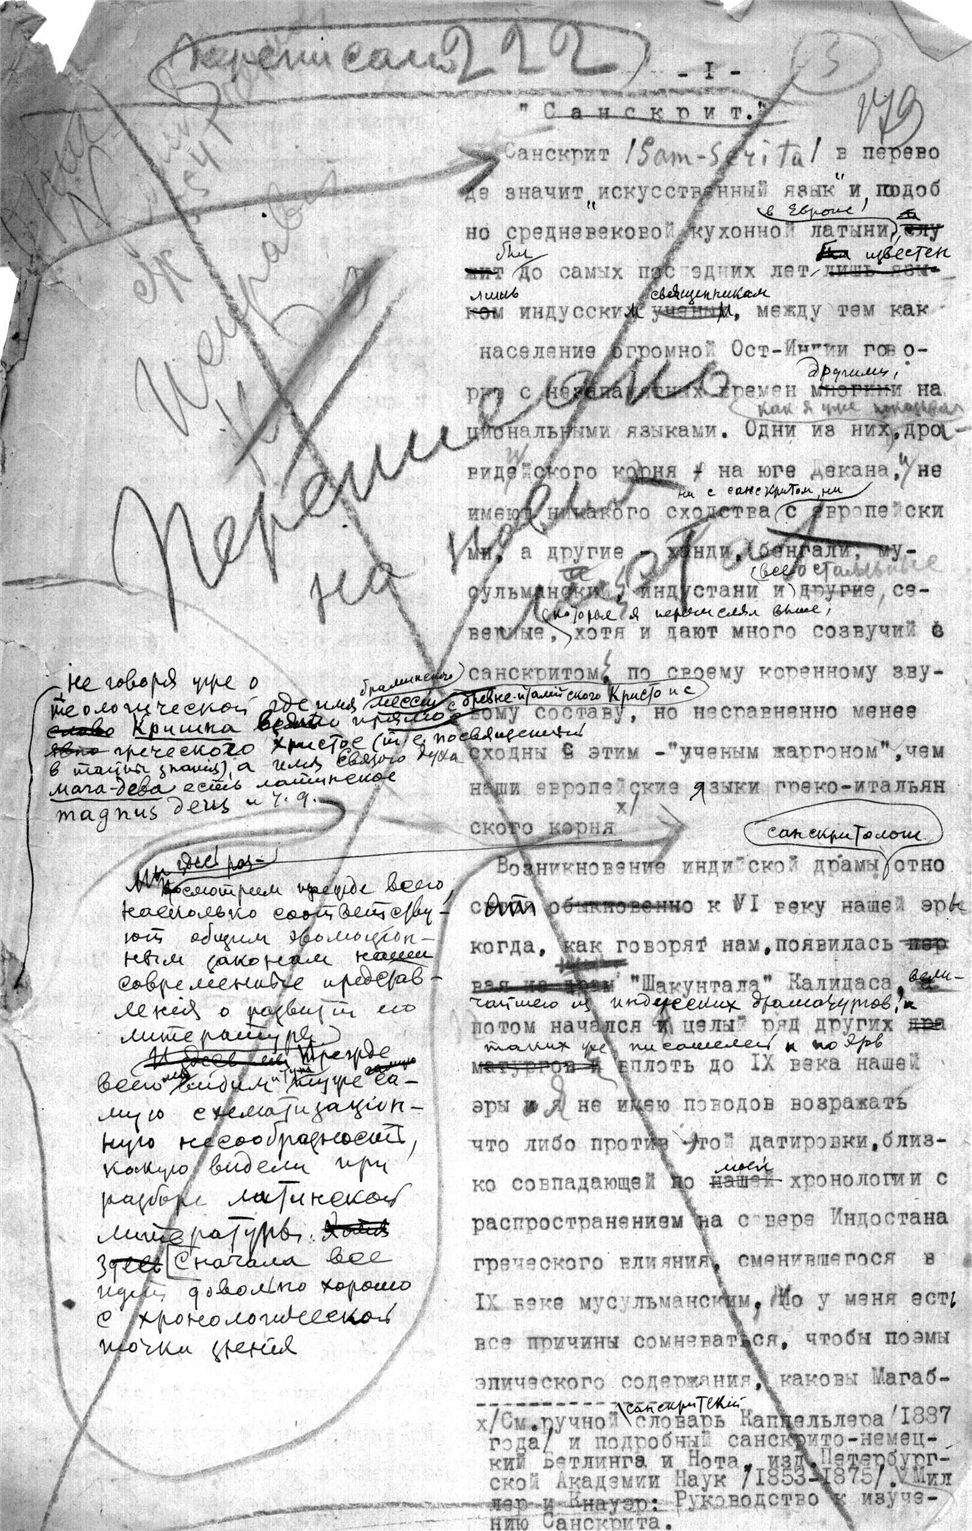 переписать 222
- I -
3
179
"Санскрит."
Санскрит /Sam-Scrita/ в перево
де значит "искусственный язык" и, подоб
в Европе/
но средневековой кухонной латыни, слу
был известен
жит до самых последних лет лишь язы-
лишь священникам
ком индусским ученым, между тем как
население огромной Ост-Индии гово-
другими,
рит с незапамятных времен многими на
как я уже показывал
циональными языками. Одни из них, дра-
видейского корня на юге Декана, не
ни с санскритом, ни
имеют никакого сходства с европейски
ми, а другие - хинди, бенгали, му-
все остальные
сульмански, индустани и другие, се-
которые я перечислял выше,
верные, хотя и дают много созвучий с
санскритом, по своему коренному зву-
ковому составу, но несравненно менее
сходны с этим -"ученым жаргоном", чем
наши европейские языки греко-итальян
ского корня х/
санскритологи
Возникновение индийской драмы отно
сят обыкновенно к VI веку нашей эры
когда, как говорят нам, появилась пер
вая из драм "Шакунтала" Калидаса, вели-
чайшего из индусских драматургов, и
потом начался и целый ряд других дра
таких же писателей и поэтов
матургов и вплоть до IX века нашей
эры и я не имею поводов возражать
что либо против этой датировки, близ-
моей
ко совпадающей по нашей хронологии с
распространением на севере Индостана
греческого влияния, сменившегося в
IX веке мусульманским. Но у меня есть
все причины сомневаться, чтобы поэмы
эпического содержания, каковы Магаб-
санскритский
х/См.ручной словарь Каппельлера /1887
года/ и подробный санскрито-немец-
кий Бетлинга и Нота, изд.Петербург-
ской Академии Наук /1853-1875/. Мил
лер и Кнауэр: Руководство к изуче-
нию Санскрита.
Перепечатано
на новых
листах
Исправ
не говоря уже о
теологической где имя браминского
мессии
слово Кришна прямо с древне-италийского Кристо и с
явно греческого христос (т.е. посвященный
в тайны знания), а имя святого духа
мага-дева есть латинское
magnus deus и т. д.
Мы здесь раз-
смотрим прежде всего,
насколько соответству-
ют общим эволюцион-
ным законам наши
современные представ-
ления о развитии его
литературы.
Прежде
всего мы видим тут туже са-
мую схематизацион-
ную несообразность,
какую видели при
разборе латинской
литературы.
здесь Сначала все
идет довольно хорошо
с хронологической
точки зрения